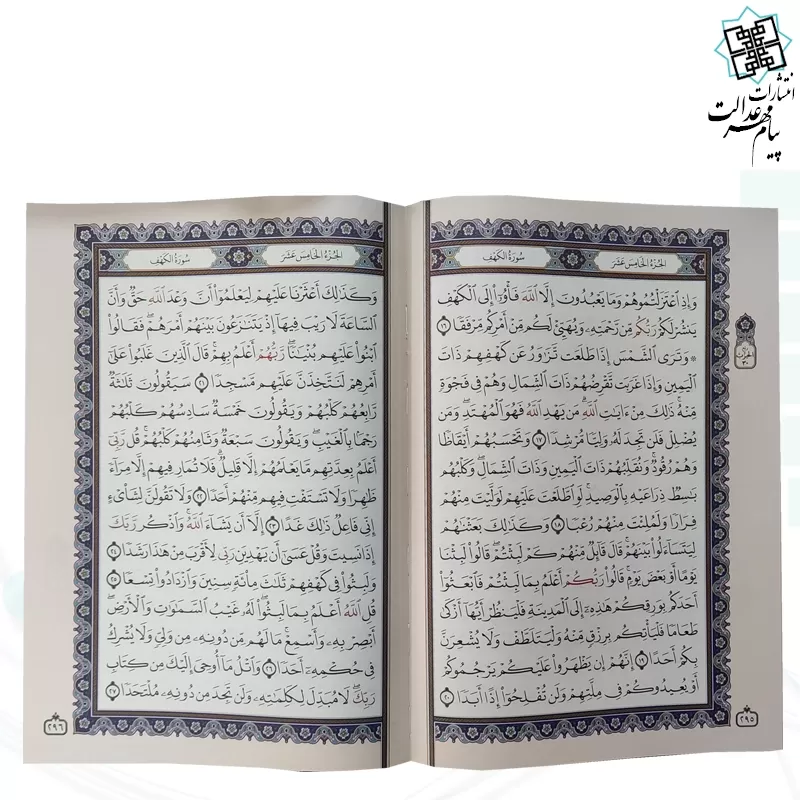 انتشارات
پیام مهر عدالت
الجُزْءُ الخَامِسَ عَشَرَ
سُورَةُ الكَهْفِ
وَإِذِ ٱعْتَزَلْتُمُوهُمْ وَمَا يَعْبُدُونَ إِلَّا ٱللَّهَ فَأْوُۥٓا۟ إِلَى ٱلْكَهْفِ
يَنشُرْ لَكُمْ رَبُّكُم مِّن رَّحْمَتِهِۦ وَيُهَيِّئْ لَكُم مِّنْ أَمْرِكُم مِّرْفَقًا ١٦
۞ وَتَرَى ٱلشَّمْسَ إِذَا طَلَعَت تَّزَٰوَرُ عَن كَهْفِهِمْ ذَاتَ
ٱلْيَمِينِ وَإِذَا غَرَبَت تَّقْرِضُهُمْ ذَاتَ ٱلشِّمَالِ وَهُمْ فِى فَجْوَةٍ
مِّنْهُ ۚ ذَٰلِكَ مِنْ ءَايَٰتِ ٱللَّهِ ۗ مَن يَهْدِ ٱللَّهُ فَهُوَ ٱلْمُهْتَدِ ۖ وَمَن
يُضْلِلْ فَلَن تَجِدَ لَهُۥ وَلِيًّا مُّرْشِدًا ١٧ وَتَحْسَبُهُمْ أَيْقَاظًا
وَهُمْ رُقُودٌ ۚ وَنُقَلِّبُهُمْ ذَاتَ ٱلْيَمِينِ وَذَاتَ ٱلشِّمَالِ ۖ وَكَلْبُهُم
بَٰسِطٌ ذِرَاعَيْهِ بِٱلْوَصِيدِ ۚ لَوِ ٱطَّلَعْتَ عَلَيْهِمْ لَوَلَّيْتَ مِنْهُمْ
فِرَارًا وَلَمُلِئْتَ مِنْهُمْ رُعْبًا ١٨ وَكَذَٰلِكَ بَعَثْنَٰهُمْ
لِيَتَسَآءَلُوا۟ بَيْنَهُمْ ۚ قَالَ قَآئِلٌ مِّنْهُمْ كَمْ لَبِثْتُمْ ۖ قَالُوا۟ لَبِثْنَا
يَوْمًا أَوْ بَعْضَ يَوْمٍ ۚ قَالُوا۟ رَبُّكُمْ أَعْلَمُ بِمَا لَبِثْتُمْ فَٱبْعَثُوٓا۟
أَحَدَكُم بِوَرِقِكُمْ هَٰذِهِۦٓ إِلَى ٱلْمَدِينَةِ فَلْيَنظُرْ أَيُّهَآ أَزْكَىٰ
طَعَامًا فَلْيَأْتِكُم بِرِزْقٍ مِّنْهُ وَلْيَتَلَطَّفْ وَلَا يُشْعِرَنَّ
بِكُمْ أَحَدًا ١٩ إِنَّهُمْ إِن يَظْهَرُوا۟ عَلَيْكُمْ يَرْجُمُوكُمْ
أَوْ يُعِيدُوكُمْ فِى مِلَّتِهِمْ وَلَن تُفْلِحُوٓا۟ إِذًا أَبَدًا ٢٠
٢٩٥
الجُزْءُ الخَامِسَ عَشَرَ
سُورَةُ الكَهْفِ
وَكَذَٰلِكَ أَعْثَرْنَا عَلَيْهِمْ لِيَعْلَمُوٓا۟ أَنَّ وَعْدَ ٱللَّهِ حَقٌّ وَأَنَّ
ٱلسَّاعَةَ لَا رَيْبَ فِيهَآ إِذْ يَتَنَٰزَعُونَ بَيْنَهُمْ أَمْرَهُمْ ۖ فَقَالُوا۟
ٱبْنُوا۟ عَلَيْهِم بُنْيَٰنًا ۖ رَّبُّهُمْ أَعْلَمُ بِهِمْ ۚ قَالَ ٱلَّذِينَ غَلَبُوا۟ عَلَىٰٓ
أَمْرِهِمْ لَنَتَّخِذَنَّ عَلَيْهِم مَّسْجِدًا ٢١ سَيَقُولُونَ ثَلَٰثَةٌ
رَّابِعُهُمْ كَلْبُهُمْ وَيَقُولُونَ خَمْسَةٌ سَادِسُهُمْ كَلْبُهُمْ
رَجْمًۢا بِٱلْغَيْبِ ۖ وَيَقُولُونَ سَبْعَةٌ وَثَامِنُهُمْ كَلْبُهُمْ ۚ قُل رَّبِّىٓ
أَعْلَمُ بِعِدَّتِهِم مَّا يَعْلَمُهُمْ إِلَّا قَلِيلٌ ۗ فَلَا تُمَارِ فِيهِمْ إِلَّا مِرَآءً
ظَٰهِرًا وَلَا تَسْتَفْتِ فِيهِم مِّنْهُمْ أَحَدًا ٢٢ وَلَا تَقُولَنَّ لِشَا۟ىْءٍ
إِنِّى فَاعِلٌ ذَٰلِكَ غَدًا ٢٣ إِلَّآ أَن يَشَآءَ ٱللَّهُ ۚ وَٱذْكُر رَّبَّكَ
إِذَا نَسِيتَ وَقُلْ عَسَىٰٓ أَن يَهْدِيَنِ رَبِّى لِأَقْرَبَ مِنْ هَٰذَا رَشَدًا ٢٤
وَلَبِثُوا۟ فِى كَهْفِهِمْ ثَلَٰثَ مِا۟ئَةٍ سِنِينَ وَٱزْدَادُوا۟ تِسْعًا ٢٥
قُلِ ٱللَّهُ أَعْلَمُ بِمَا لَبِثُوا۟ ۖ لَهُۥ غَيْبُ ٱلسَّمَٰوَٰتِ وَٱلْأَرْضِ ۖ
أَبْصِرْ بِهِۦ وَأَسْمِعْ ۚ مَا لَهُم مِّن دُونِهِۦ مِن وَلِىٍّ وَلَا يُشْرِكُ
فِى حُكْمِهِۦٓ أَحَدًا ٢٦ وَٱتْلُ مَآ أُوحِىَ إِلَيْكَ مِن كِتَابِ
رَبِّكَ ۖ لَا مُبَدِّلَ لِكَلِمَٰتِهِۦ وَلَن تَجِدَ مِن دُونِهِۦ مُلْتَحَدًا ٢٧
٢٩٦